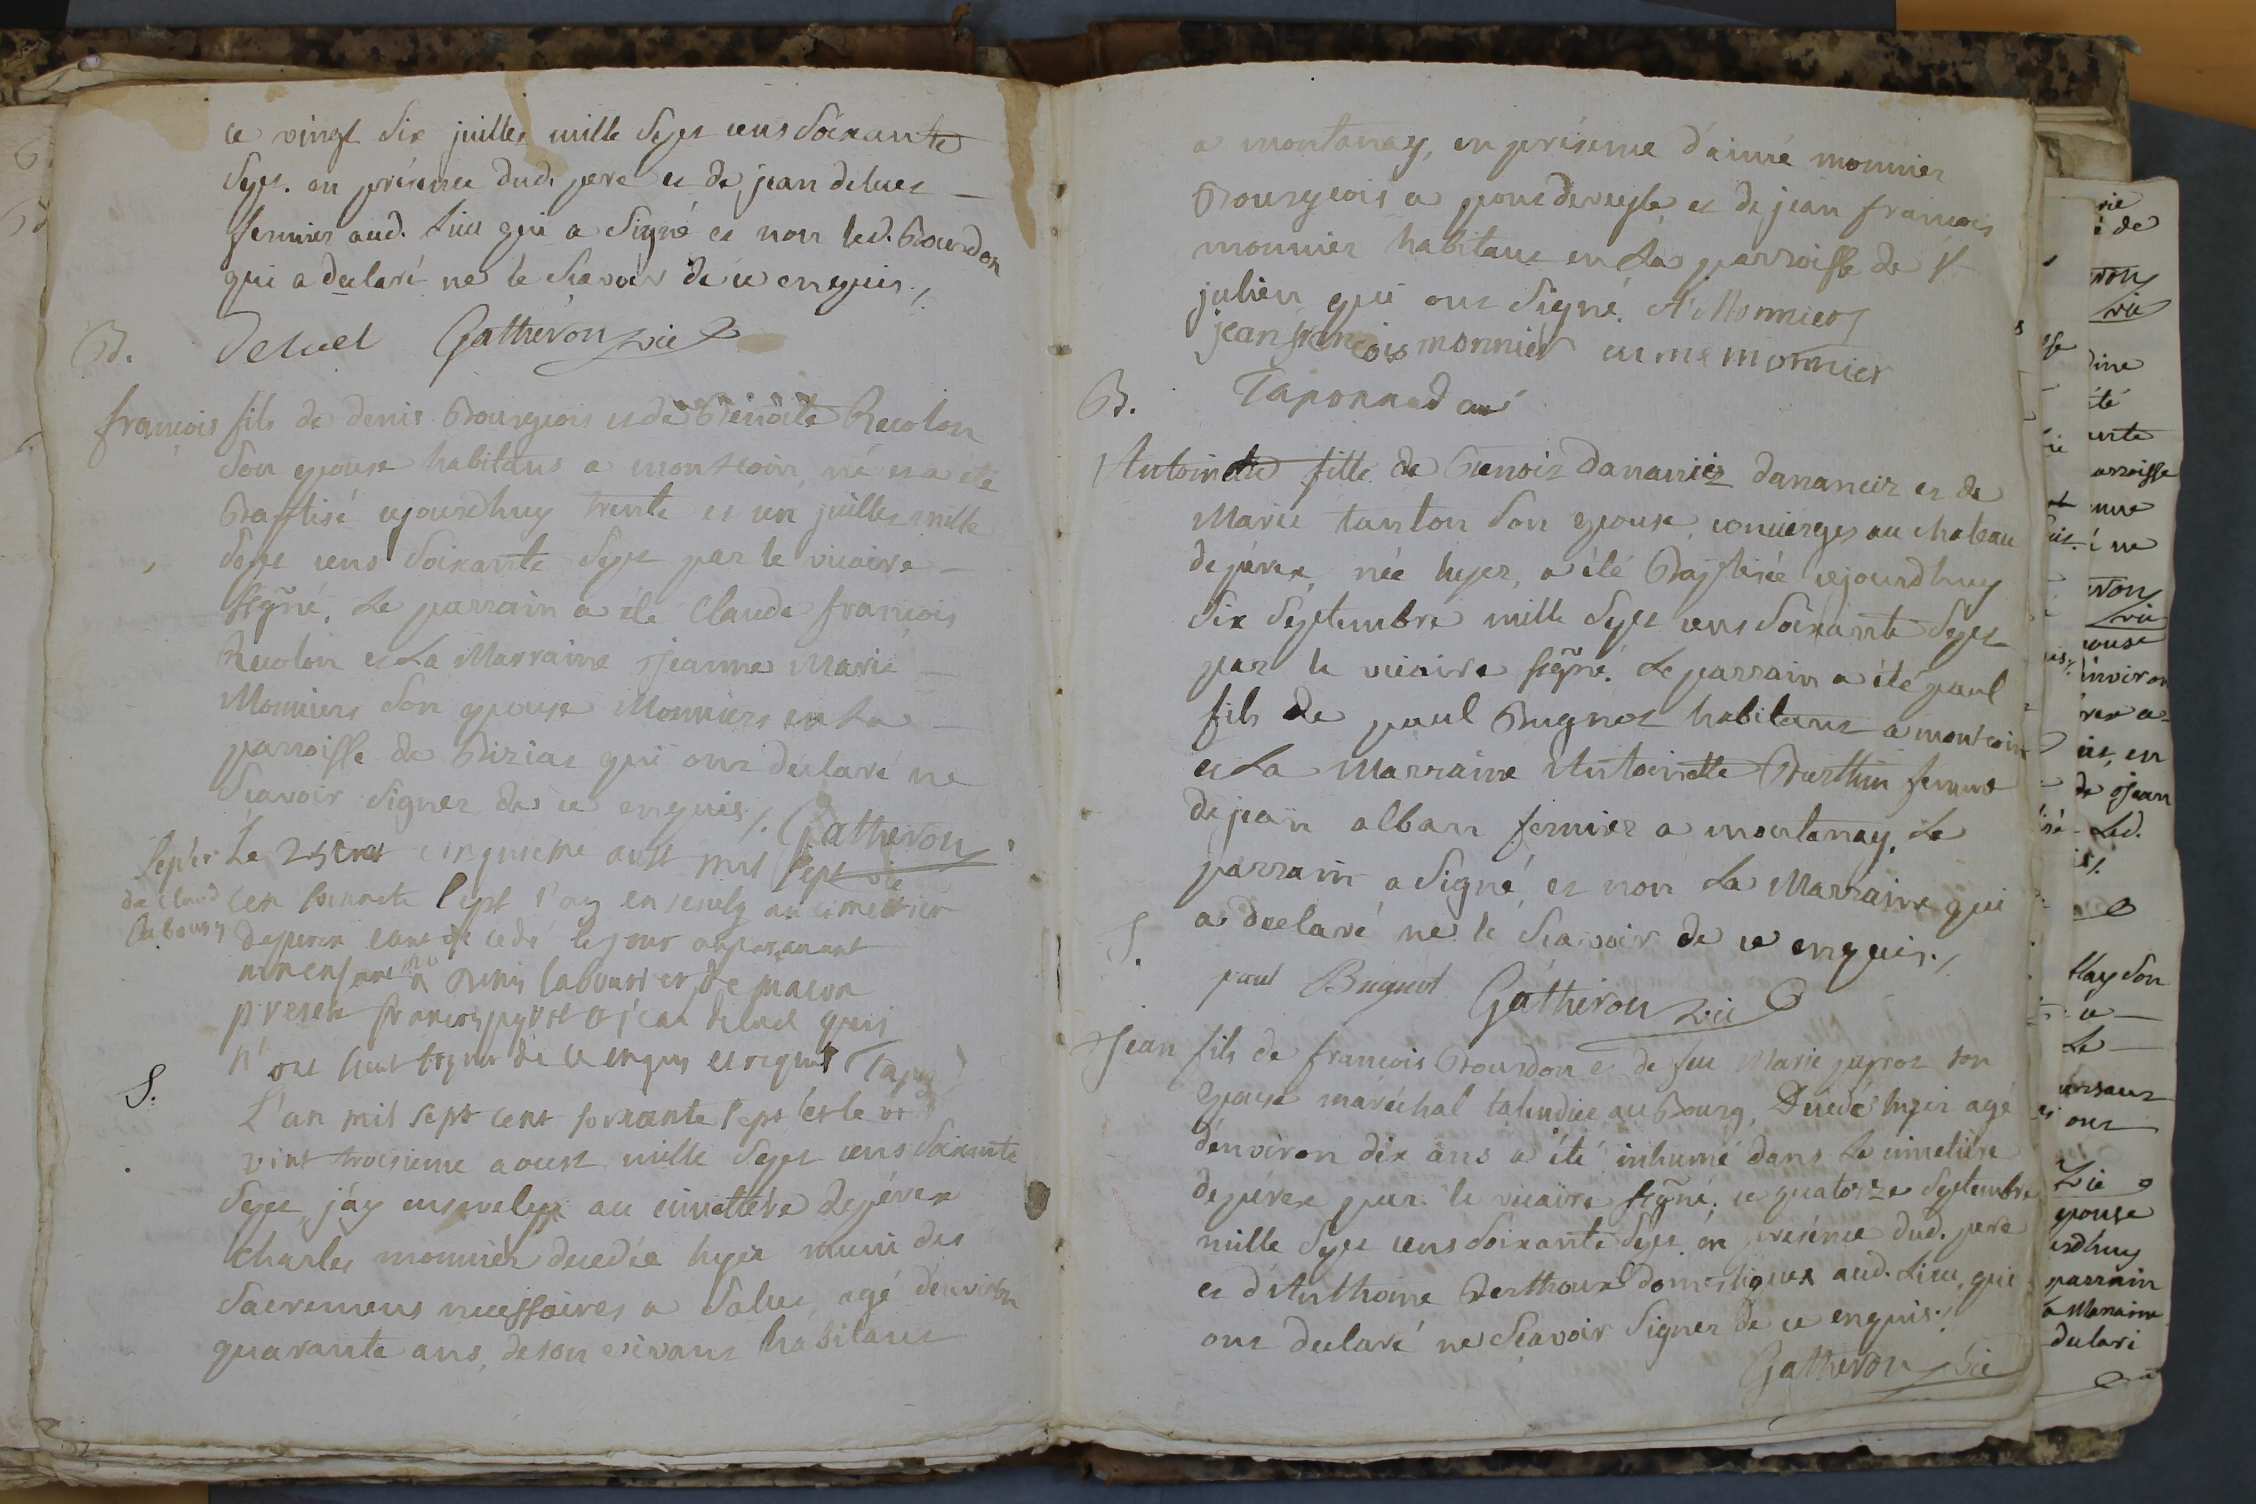 ce vingt six juillet mille sept cens soixante
sept. en présence dud. pere et de jean deluet
fermier aud. Lieu qui a signé et non led. Bourdon
qui a declaré ne le scavoir de ce enquis ./.
B. deluel Gatheron vic
françois fils de denis Bourgeois et de Benoite Recolon
son epouse habitans a montcoin, né et a eté
Baptisé cejourdhuy trente et un juillet mille
sept cens soixante sept par le vicaire
sigñé. Le parrain a été Claude françois
Recolon et La Marraine Jeanne Marie
Monniers son epouse Monniers en La
parroisse de Biziat qui ont déclaré ne
scavoir signer de ce enquis ./. Gatheron
vic
Le cinquieme aust mil sept
cen soixante sept j'ay enseuely au cimetier
de perex decedé le jour auparavant
un enfant a Denis labourier de macon
presen francois et jean deluel quis
n'ont sceut signer de ce enquis et requis
S. L'an mil sept cent soixante sept et le
vint troisieme aoust mille sept cens soixante
sept j'ay ensevelÿ au cimettière de pérex
Charles monnier decedé hyer muni des
sacremens necessaires a salut, agé d'environ
quarante ans, de son vivant habitant
a montanay, en présence d'aimé monnier
Bourgeois a pont de vesle et de jean francois
monnier habitant en La parroisse de St
julien qui ont signé. A Monnier
jean francois monnier aimé monnier
B. Taponnad curé
Antoinette fille de Benoit Dananciez dananciz et de
Marie tanton son epouse, concierges au chateau
de pérex, née hyer, a été Baptisée cejourdhuy
six septembre mille sept cens soixante sept
par le vicaire sigñé. Le parrain a été paul
fils de paul Bugnot habitant a montcoin
et La Marraine Antoinette Berthin femme
de jean alban fermier a montanay. Le
parrain a signé, et non La Marraine qui
a declaré ne le scavoir de ce enquis ./.
S. paul Bugnot Gatheron vic
Jean fils de francois Bourdon et de feu Marie perroz son
epouse maréchal talendier au Bourg, Decedé hyer agé
d'environ dix ans a été inhumé dans Le cimetière
de pérex par le vicaire sigñé, ce quatorze septembre
mille sept cens soixante sept en présence dud. pere
et d'Anthoine Berthoux domestiques aud. Lieu, qui
ont declaré ne scavoir signer de ce enquis ./.
Gatheron vic